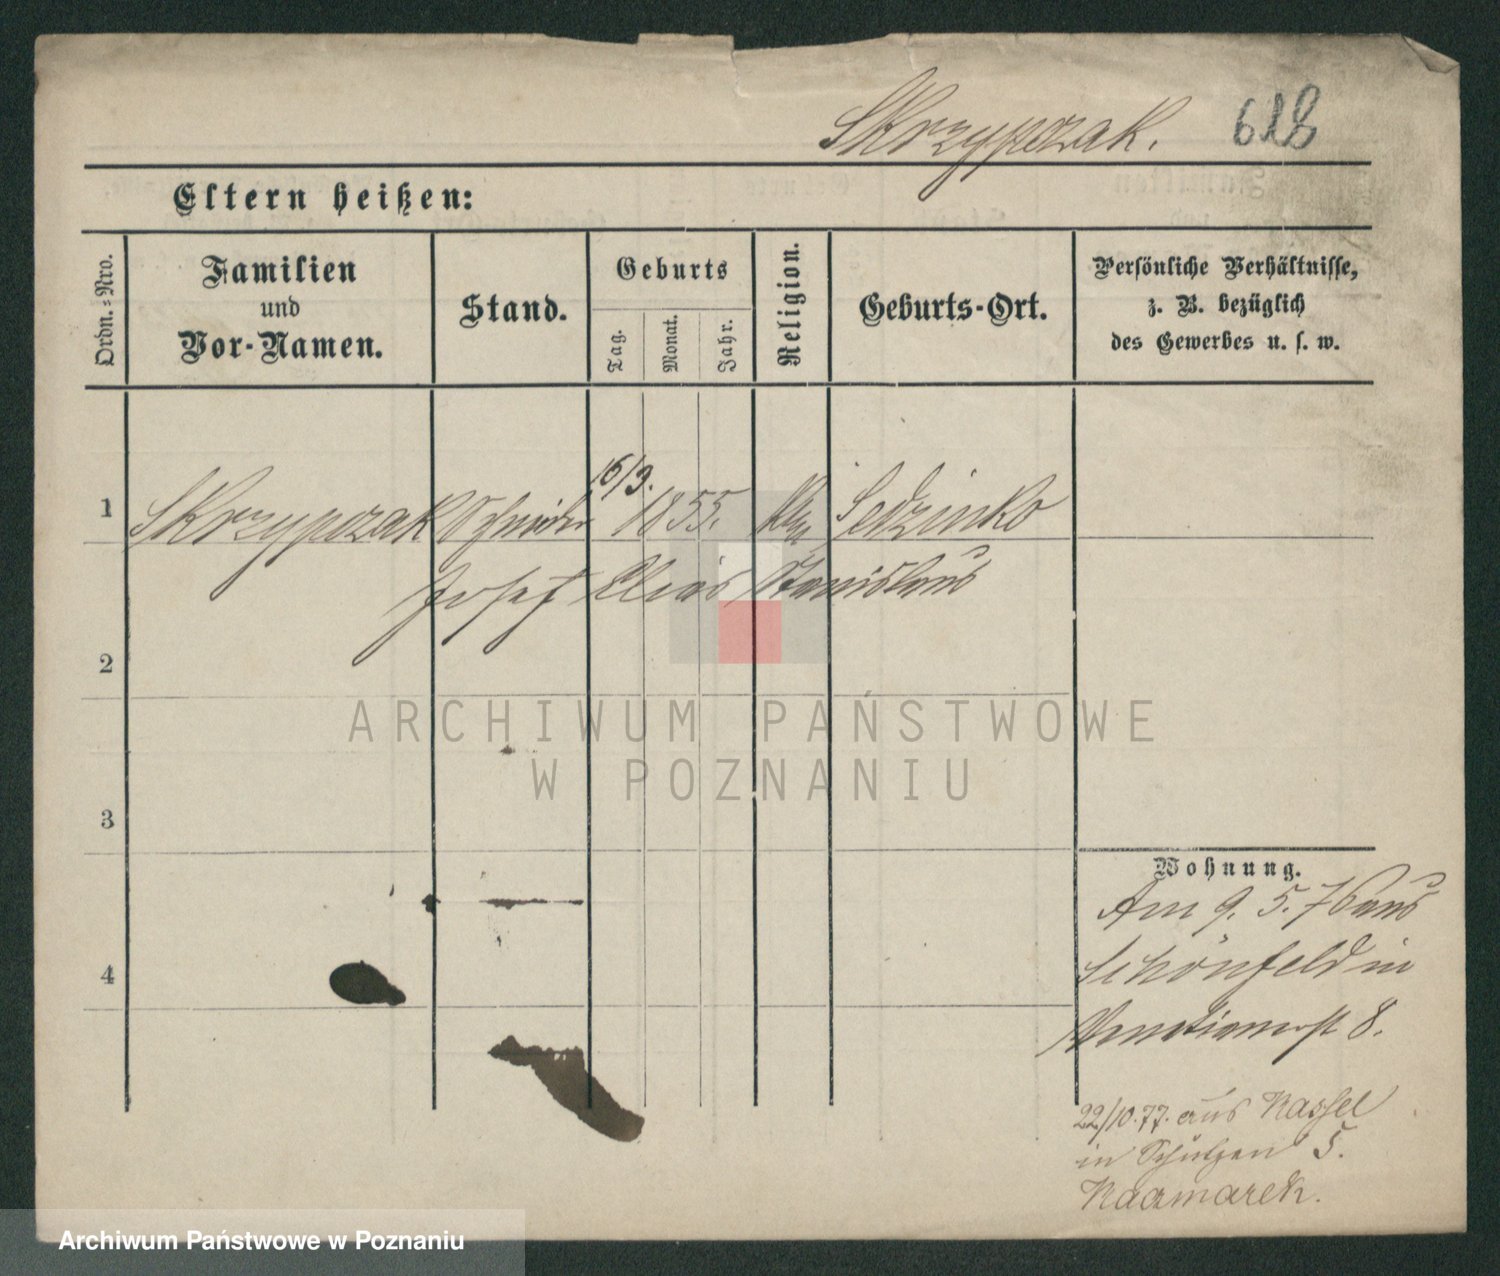 Skrzypczak. 618
Eltern heißen:
Ordn.=Nro.
Familien
und
Vor-Namen.
Stand.
Geburts
Tag.
Monat.
Jahr.
Religion.
Geburts-Ort.
Persönliche Verhältnisse,
z. B. bezüglich
des Gewerbes u. s. w.
16/3.
1 Skrzypczak Schneider 1855. Sedzinko
Josef Elias Stanislaus
2
ARCHIWUM PAŃSTWOWE
W POZNANIU
3
Wohnung.
Am 9. 5. 76 aus
Schönfeld in
Venetianerst 8.
4
22/10. 77. aus Kassel
in Schützen 5.
Kaczmarek.
Archiwum Państwowe w Poznaniu